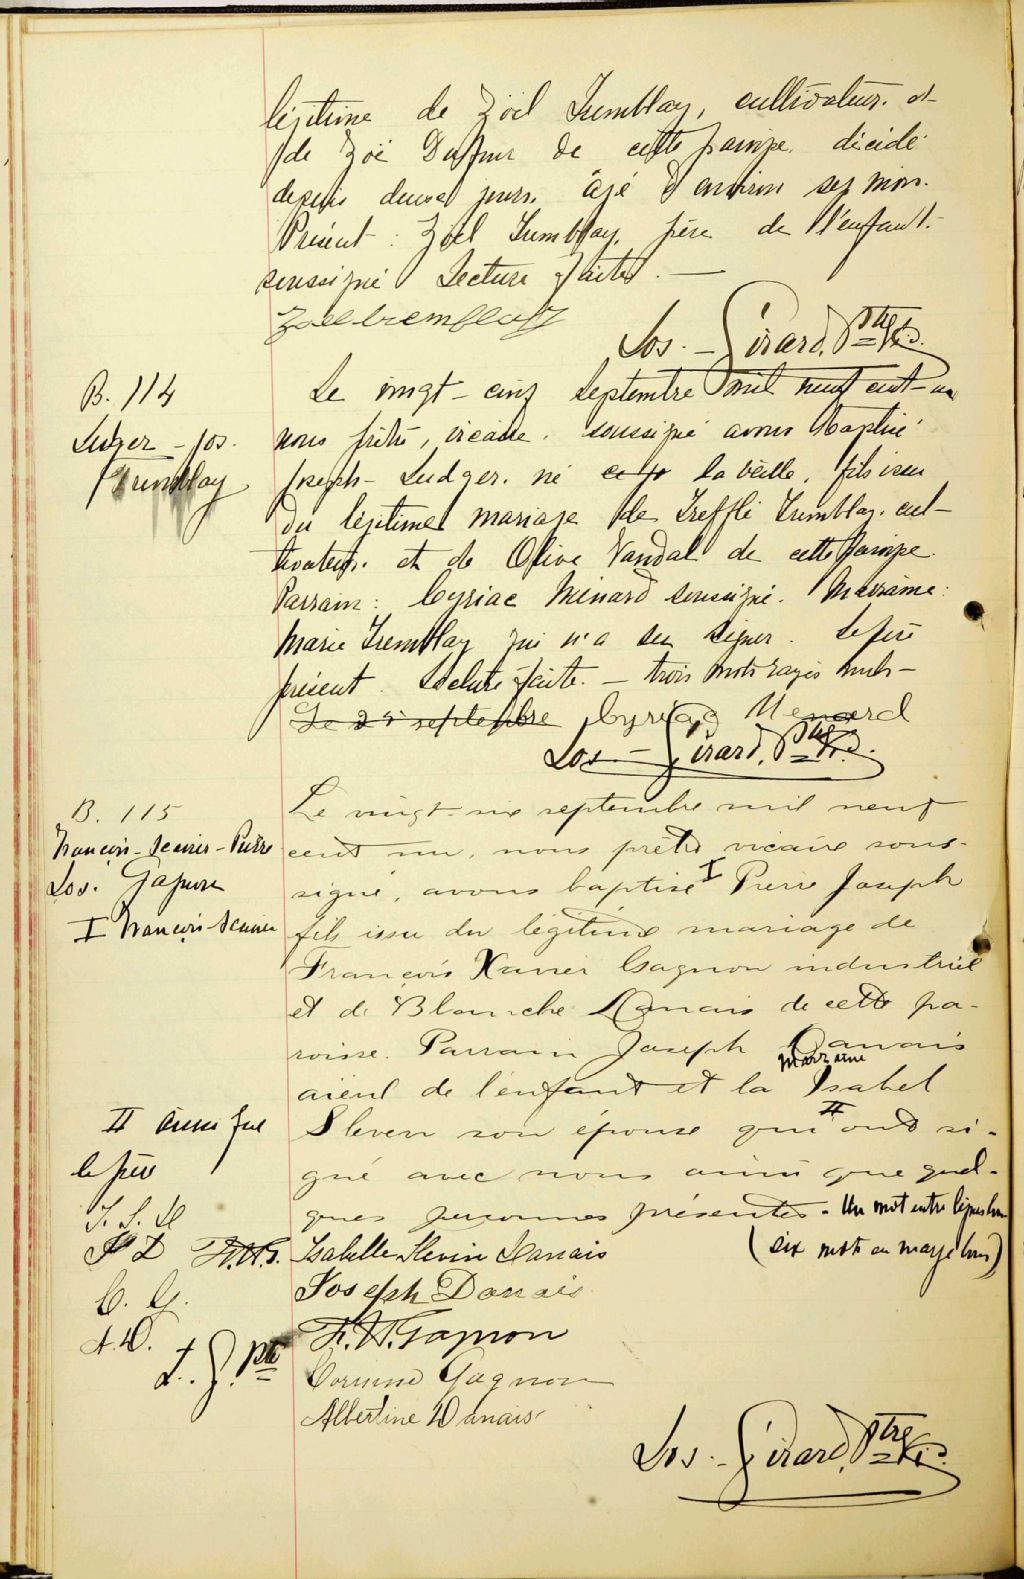 légitime de Zoël Tremblay, cultivateur. et
de Zoë Dufour de cette paroisse. décédé
depuis deux jours. âgé d'environ sep mois.
Présent : Zoël Tremblay, père de l'enfant.
soussigné Lecture faite. —
Zoel tremblay
Jos. - Girard, Ptre Vic.
B. 114
Ludger - Jos.
Tremblay
Le vingt-cinq Septembre mil neuf cent-un
nous prêtre, vicaire. soussigné avons baptisé
Joseph-Ludger. né la veille, fils issu
du légitime mariage de Trefflé Tremblay. cul-
tivateur. et de Olive Vandal de cette paroisse.
Parrain : Cyriac Ménard soussigné. Marraine :
Marie Tremblay qui n'a su signer. Le père
présent. Lecture faite. — trois mots rayés nuls —
Le 25 septembre Cyriac Menard
Jos - Girard, Ptre Vic.
B. 115
François-Xavier-Pierre
Jos. Gagnon
I François-Xavier
Le vingt-six septembre mil neuf
cent un, nous prêtre vicaire sous-
signé, avons baptisé I Pierre Joseph
fils issu du légitime mariage de
François Xavier Gagnon industriel
et de Blanche Danais de cette pa-
roisse. Parrain Joseph Danais
marraine
aïeul de l'enfant et la Isabel
Sleven son épouse qui II ont si-
gné avec nous ainsi que quel-
ques personnes présentes. Un mot entre lignes bon
(six mots en marge bons)
II ainsi que
le père
I. S. D
J D F.X.G.
C. G.
A. D.
J. G. Ptre
Isabelle Slevin Danais
Joseph Danais
F. X. Gagnon
Corinne Gagnon
Albertine Danais
Jos. - Girard, Ptre Vic.